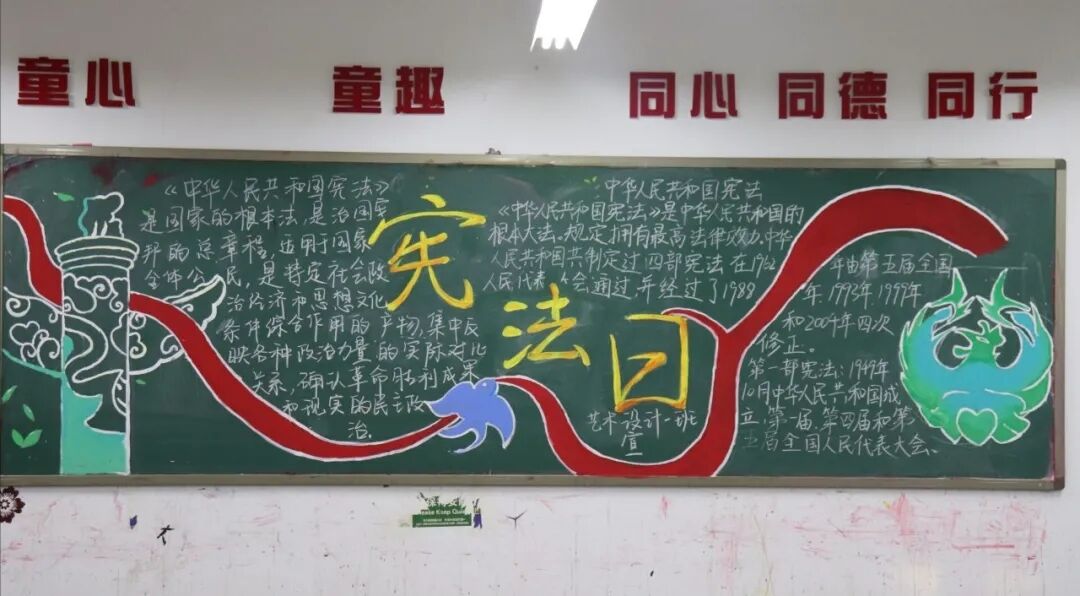 童心
童趣
同心 同德 同行
《中华人民共和国宪法》
是国家的根本法，是治国安
邦的总章程，适用于国家
全体公民，是特定社会政
治经济和思想文化
条件综合作用的产物，集中反
映各种政治力量的实际对比
关系，确认革命胜利成果
和现实的民主政
治。
宪法日
中华人民共和国宪法
《中华人民共和国宪法》是中华人民共和国的
根本大法，规定拥有最高法律效力。中华
人民共和国共制定过四部宪法 在1982 年由第五届全国
人民代表大会通过，并经过了1988 年、1993年、1999年
和2004年四次
修正。
第一部宪法：1949年
10月中华人民共和国成
立，第一届、第四届和第
五届全国人民代表大会、
艺术设计一班
宣
Please Keep Quiet